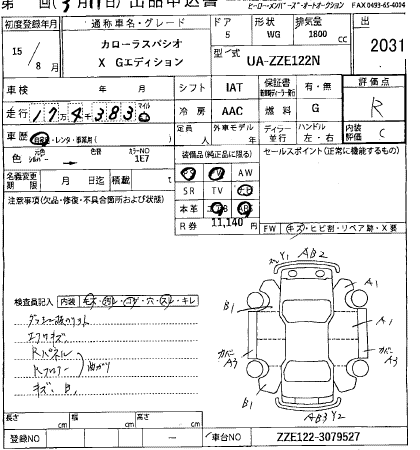 第 回(3月11日)出品申込書 ヒーロー・メンバーズ・オートオークション FAX 0493-65-4004
初度登録年月 通称車名・グレード ドア 形状 排気量 出
15/8月 カローラスパシオ X Gエディション 5 WG 1800cc 2031
型式 UA-ZZE122N
車検 年 月 シフト IAT 保証書 有・無 評価点
走行 174383マイル 冷房 AAC 燃料 G R
車歴 レンタ・事業用 定員 人 外車モデル 年 ディーラー 並行 ハンドル 左・右 内装評価 C
色 元色 シルバー 色替 カラーNO 1E7 装備品(純正品に限る) セールスポイント(正常に機能するもの)
名義変更期限 月 日迄 積載 t PS PW AW
SR TV ナビ
注意事項(欠品・修復・不具合箇所および状態) 本革 エアB ABS
R券 11,140円 FW キズ・ヒビ割・リペア跡・X要
Y1 AB2
A1
B1
A1
カバーA3 カバーA3
B1
AB3 Y2
検査員記入 内装 キズ・汚れ・コゲ・穴・スレ・キレ
エクリキズ
Rパネル
Rフロアー 曲がり
長さ cm 幅 cm 高さ cm
登録NO － 車台NO ZZE122-3079527